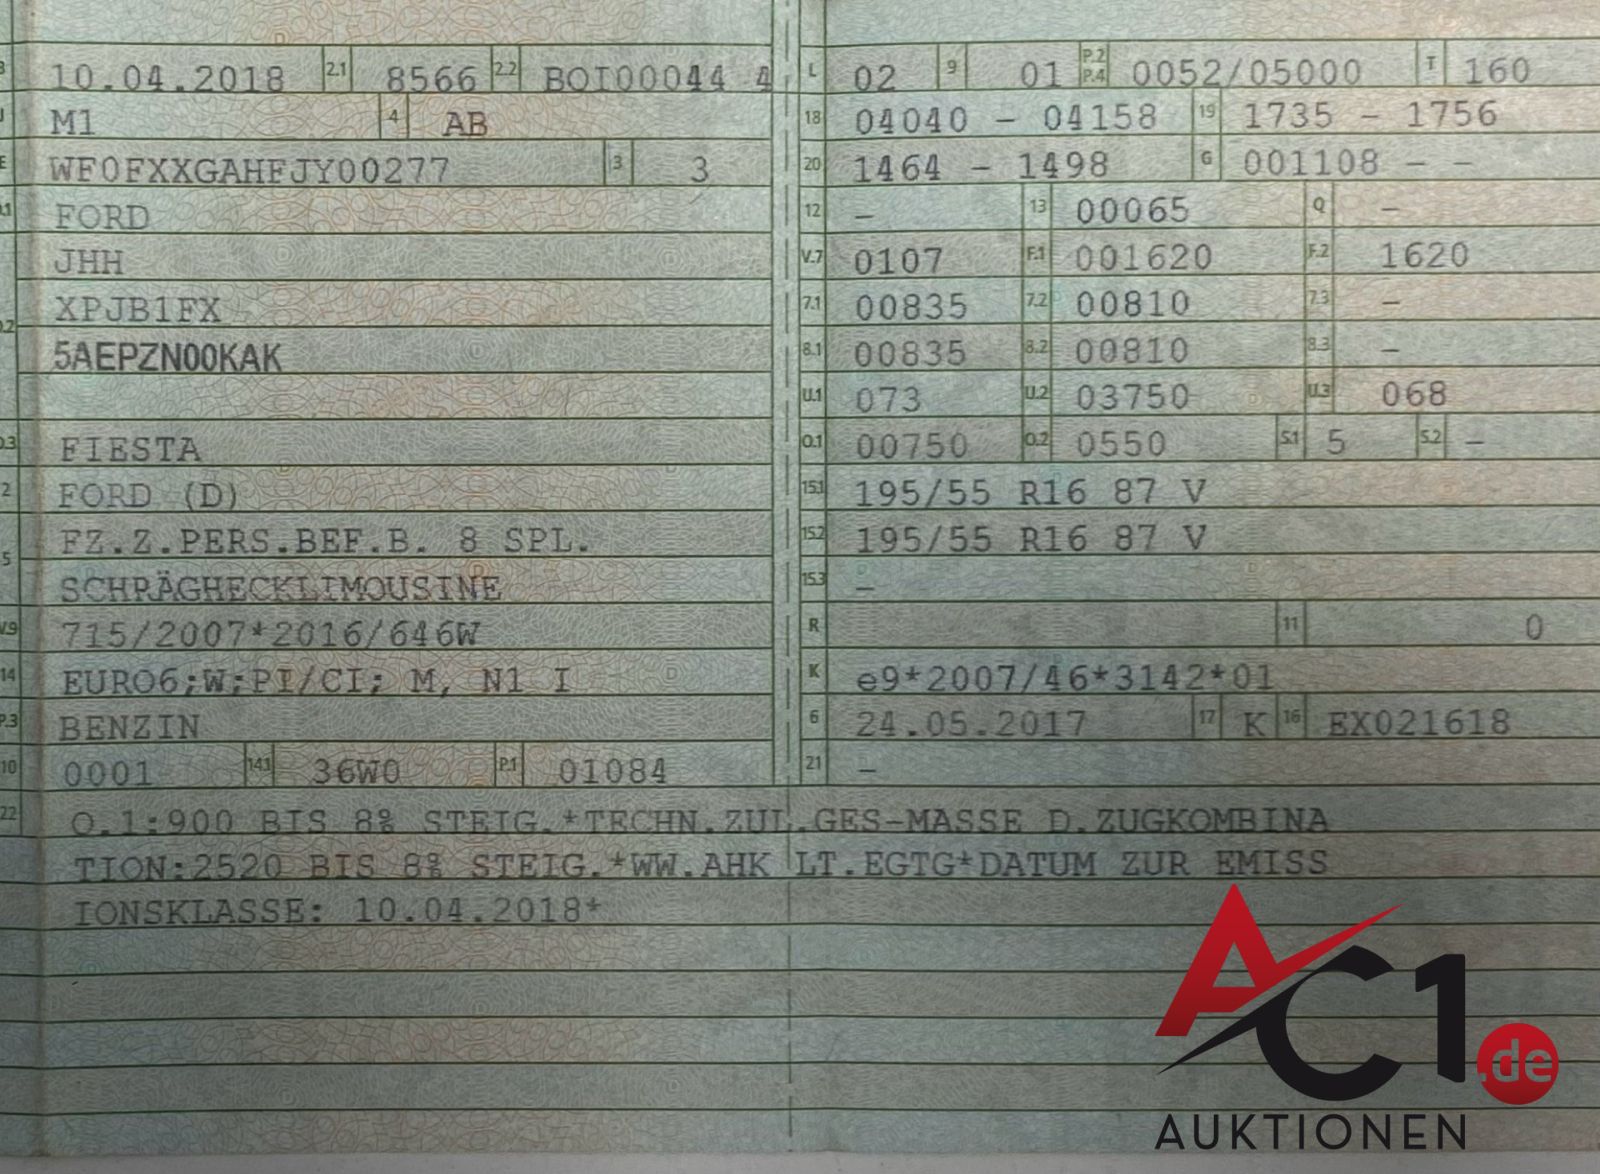 10.04.2018 2.1 8566 2.2 BOI00044 4
M1 4 AB
WF0FXXGAHFJY00277 3 3
FORD
JHH
XPJB1FX
5AEPZN00KAK
FIESTA
2 FORD (D)
5 FZ.Z.PERS.BEF.B. 8 SPL.
SCHRÄGHECKLIMOUSINE
V.9 715/2007*2016/646W
14 EURO6;W;PI/CI; M, N1 I
P.3 BENZIN
10 0001 14.1 36W0 P.1 01084
L 02 9 01 P.2 P.4 0052/05000 T 160
18 04040 - 04158 19 1735 - 1756
20 1464 - 1498 G 001108 - -
12 - 13 00065 Q -
V.7 0107 F.1 001620 F.2 1620
7.1 00835 7.2 00810 7.3 -
8.1 00835 8.2 00810 8.3 -
U.1 073 U.2 03750 U.3 068
O.1 00750 O.2 0550 S.1 5 S.2 -
15.1 195/55 R16 87 V
15.2 195/55 R16 87 V
15.3 -
R 11 0
K e9*2007/46*3142*01
6 24.05.2017 17 K 16 EX021618
21 -
22 O.1:900 BIS 8% STEIG.*TECHN.ZUL.GES-MASSE D.ZUGKOMBINA
TION:2520 BIS 8% STEIG.*WW.AHK LT.EGTG*DATUM ZUR EMISS
IONSKLASSE: 10.04.2018*
AC1.de
AUKTIONEN